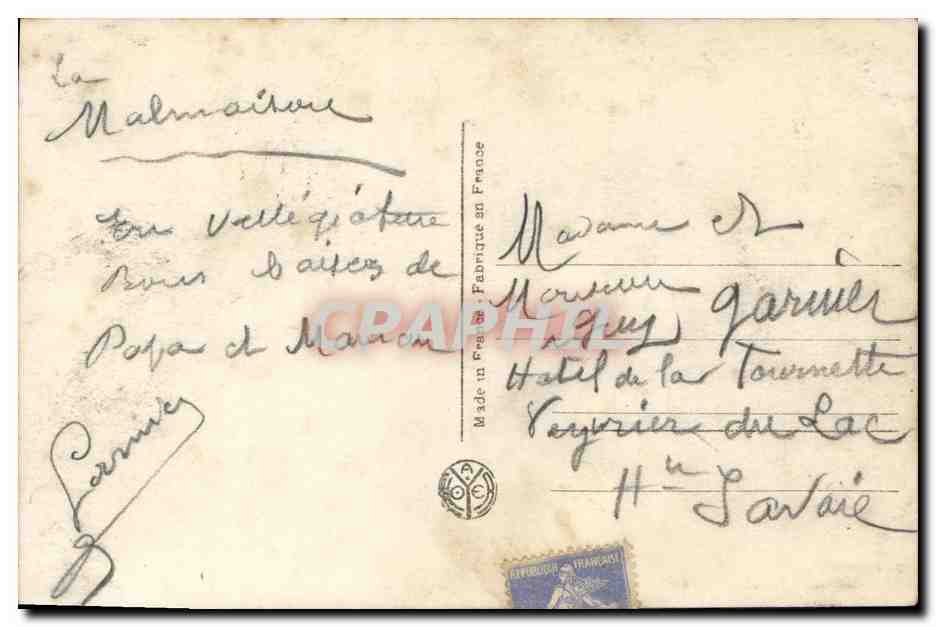 La
Malmaison
En Villégiature
Bons baisers de
Papa et Maman
Made in France - Fabriqué en France
Madame et
Monsieur
Guy Garnier
Hotel de la Tournette
Veyrier du Lac
Hte Savoie
CPAPHIL
REPUBLIQUE FRANÇAISE